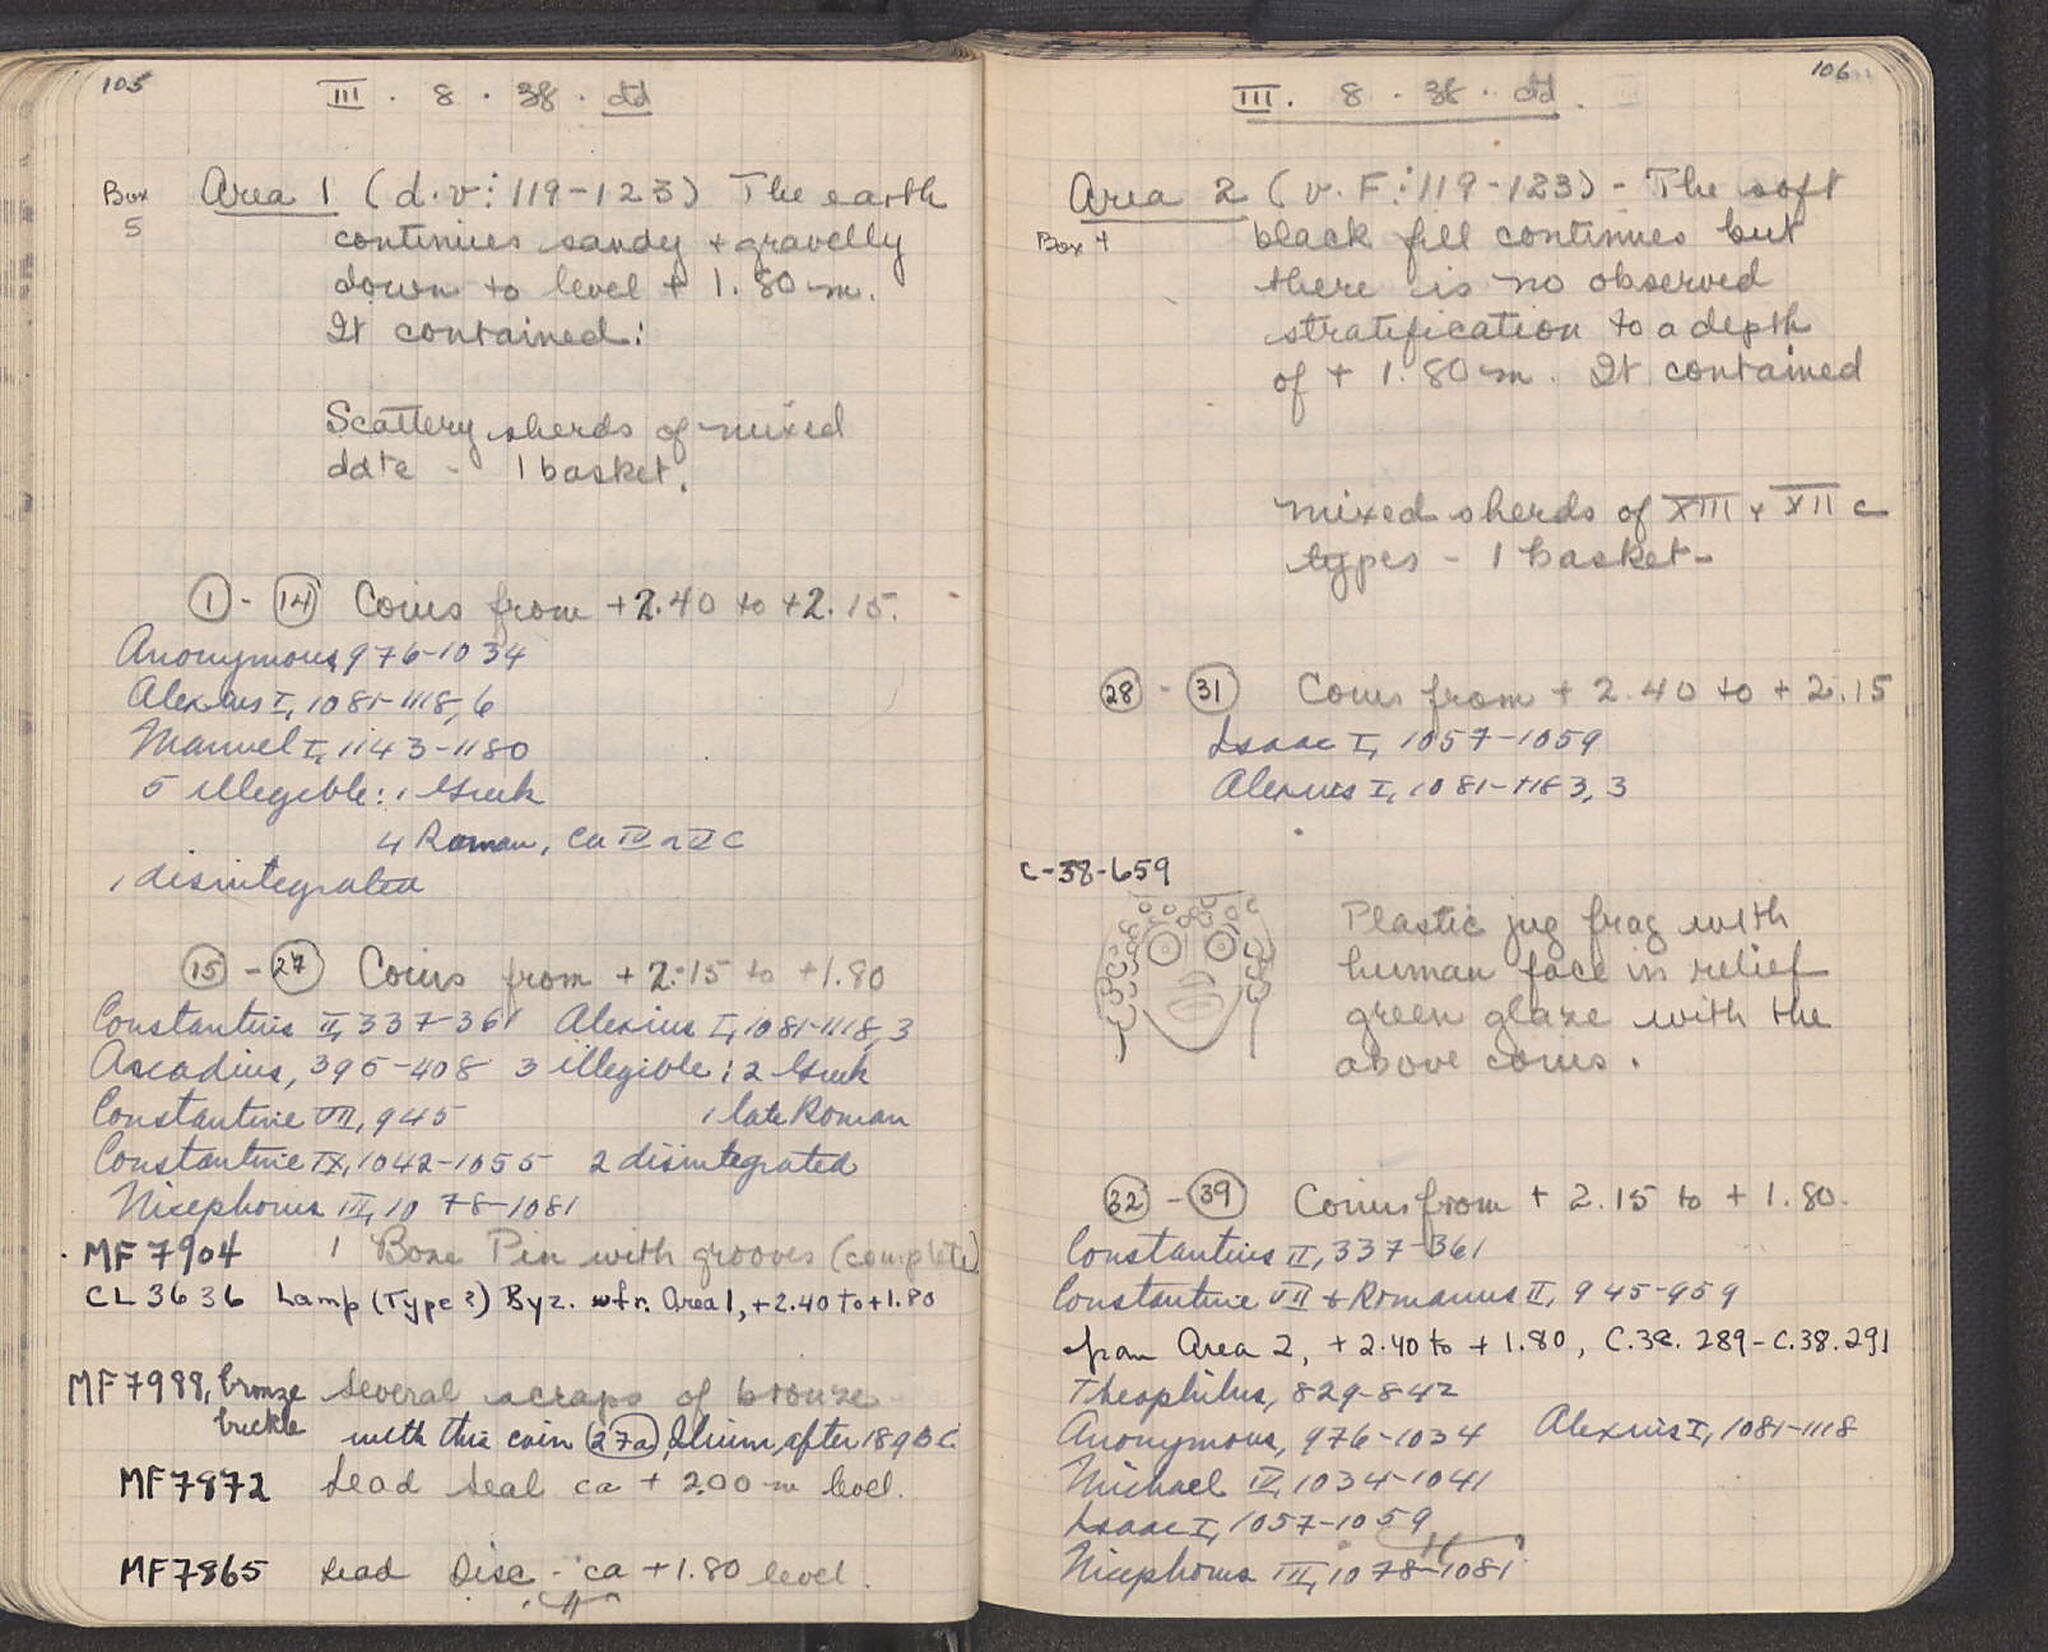 105
III . 8 . 38 . ctd
Box
5
Area 1 (d.v: 119-123) The earth
continues sandy + gravelly
down to level + 1.80 m.
It contained:
Scattery sherds of mixed
date - 1 basket.
1 - 14 Coins from +2.40 to +2.15.
Anonymous, 976-1034
Alexius I, 1081-1118, 6
Manuel I, 1143-1180
5 illegible: 1 Greek
4 Roman, ca IV or V C
1 disintegrated
15 - 27 Coins from +2.15 to +1.80
Constantius II, 337-361 Alexius I, 1081-1118, 3
Arcadius, 395-408 3 illegible: 2 Greek
Constantine VII, 945 1 late Roman
Constantine IX, 1042-1055 2 disintegrated
Nicephorus III, 1078-1081
MF 7904 1 Bone Pin with grooves (complete)
CL 3636 Lamp (Type ?) Byz. fr. Area 1, +2.40 to +1.80
MF 7988, bronze
buckle
Several scraps of bronze
with this coin 27a, Ilium, after 189 BC
MF 7872 Lead Seal ca + 2.00 m level.
MF 7865 Lead Disc - ca +1.80 level.
106
III. 8 . 38 . ctd.
Area 2 (v. F: 119-123) - The soft
Box 4
black fill continues but
there is no observed
stratification to a depth
of + 1.80 m. It contained
mixed sherds of XIII + XII c
types - 1 basket-
28 - 31 Coins from + 2.40 to + 2.15
Isaac I, 1057-1059
Alexius I, 1081-1183, 3
C-38-659
Plastic jug frag with
human face in relief
green glaze with the
above coins.
32 - 39 Coins from + 2.15 to + 1.80.
Constantius II, 337-361
Constantine VII + Romanus II, 945-959
from Area 2, +2.40 to +1.80, C.38.289-C.38.291
Theophilus, 829-842
Anonymous, 976-1034 Alexius I, 1081-1118
Michael IV, 1034-1041
Isaac I, 1057-1059
Nicephorus III, 1078-1081